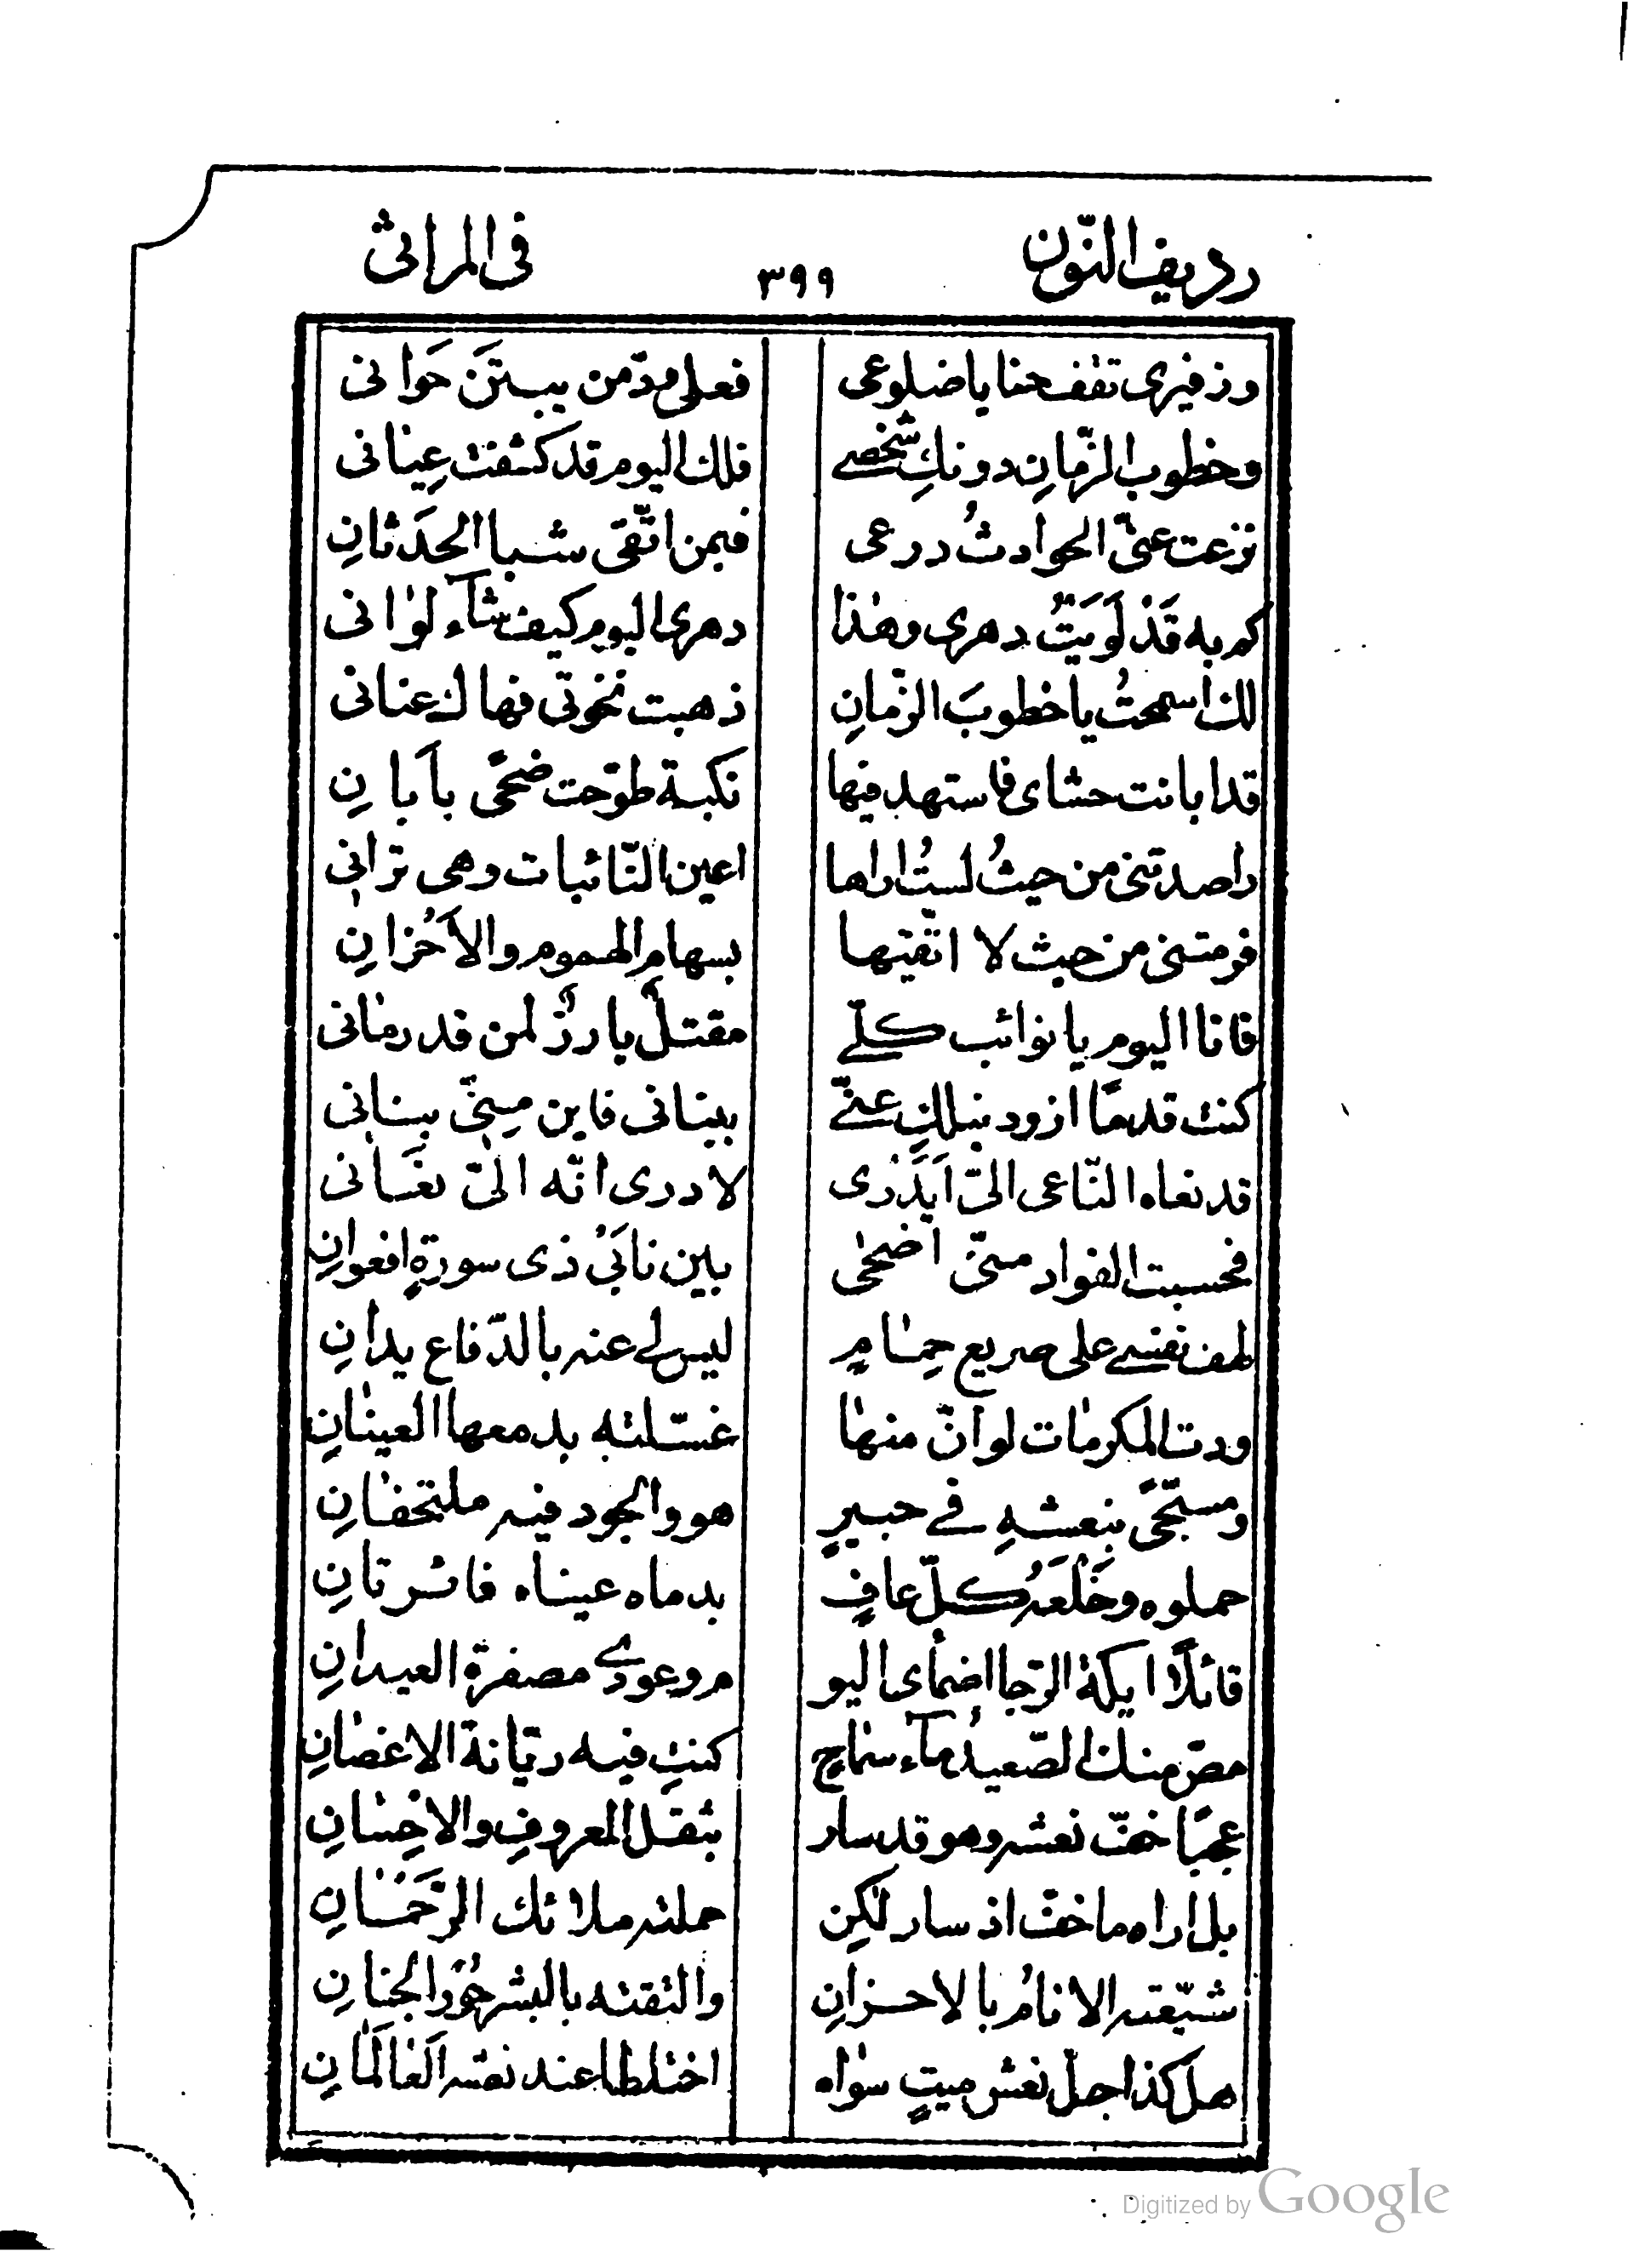 رديف النّون ٣٩٩ فى المراثى
وزفيرى تقف حنايا ضلوعى فعلى من يبيتن حَوانى
وخطوب الزّمانِ دونكِ شخصے فلك اليوم قد كشفت عِيانى
نزعت عنّى الحوادثُ درعى فبمن اتّقى شبا الحَدَثانِ
كم به قَدْ لَوَيتُ دهرى وهذا دهرى اليوم كيف شآء لوانى
لك اسمحتُ يا خطوبَ الزّمانِ ذهبت نخوتى فهاك عنانى
قد ابانت حشاى فاستهد فيها نكبة طوّحت ضحًى بأبانِ
راصدتنى من حيثُ لستُ اراها اعين النّائبات وهى ترانى
فرمتنى من حيث لا اتّقيتها بسهام الهموم والأحْزانِ
فانا اليوم يا نوائب كلّے مقتلٌ بارزٌ لمن قد رمانى
كنت قدمًا ازود نبلكِ عنّے ببنانى فاين منّى بنانى
قد نعاه النّاعى الىّ ايَدْرى لا درى انّه الىّ نعَانى
فحسبت الفواد منّى اضحى بين نابَىْ ذى سورةٍ افعوانِ
لهف نفسے على صريع حِمامٍ ليس لے عنه بالدّفاع يدانِ
ودت المكرمات لو انّ منها غسّلته بدمعها العينانِ
ومسجّى بنعشهِ فے حبيرٍ هو والجود فيه ملتحفانِ
حملوه وخَلفَهُ كلّ عافٍ بدماه عيناه فائرتانِ
قائلًا ايكة الرّجا اضماى اليو م وعودے مصفرة العيدانِ
مصّ منك الصّعيدُ مآء سماحٍ كنتِ فيه ريّانة الاغصانِ
عجبًا خفّ نعشه وهو قد سار بثقل المعروفِ والاحْسانِ
بل اراه ما خفّ اذ سار لكن حملته ملائك الرّحَمْانِ
شيّعته الانامُ بالاحزانِ والتقته بالبشر حُوْرُ الجنانِ
هل كذا جلّ نعش ميتٍ سواه اختلطا عند نعشه العَالَمانِ
Digitized by Google